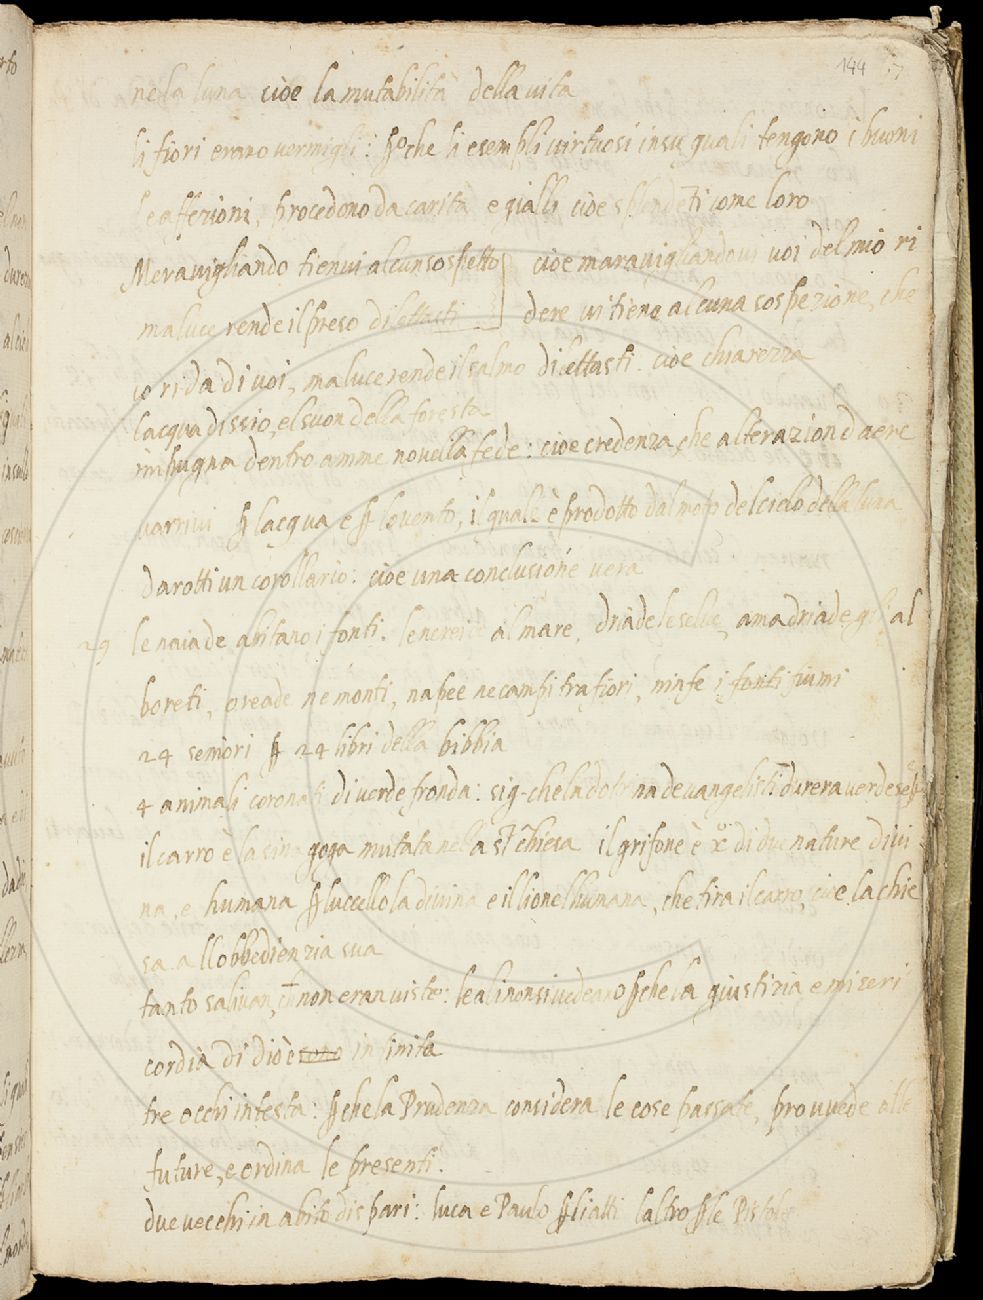 144
nella luna cioè la mutabilità della vita
li fiori erano vermigli: perche li esempli virtuosi in su quali tengono i buoni
le affezioni, procedono da carità e gialli cioè splendeti come loro
Meravigliando tienvi alcun sospetto cioè maravigliandovi voi del mio ri
ma luce rende il preso dilettasti dere vi tiene alcuna sospezione, che
io rida di voi, ma luce rende il salmo dilettasti. cioè chiarezza
lacqua dissio, el suon della foresta
impugna dentro amme novella fede: cioè credenza che alterazion d aere
varrivi p lacqua e p lo vento, il quale è prodotto dal moto del cielo della luna
darotti un corollario: cioè una conclusione vera
29 le naiade abitano i fonti. le nereide al mare, driade le selve, amadriade gli al
boreti, oreade ne monti, napee ne campi tra fiori, ninfe i fonti fiumi
24 seniori p 24 libri della bibbia
4 animali coronati di verde fronda: sig. che la dotrina de vangelisti durera verde
il carro è la sinagoga mutata nella sta chiesa il grifone è xo di due nature divi
na, e humana p luccello la divina e il lione lhumana, che tira il carro, cioè la chie
sa allobbedienzia sua
tanto salivan, ch non eran viste: le ali non si vedeano pche la giustizia e miseri
cordia di dio è sono infinita
tre occhi in testa: pche la Prudenza considera le cose passate, provvede alle
future, e ordina le presenti.
due vecchi in abito dispari: luca e Paulo p li atti laltro p le Pistole